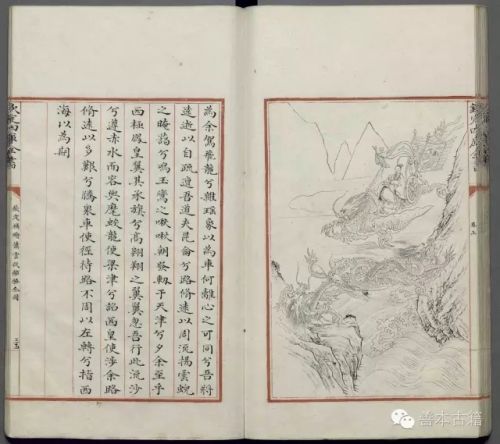 欽定四庫全書
卷上
為余駕飛龍兮雜瑶象以為車何離心之可同兮吾將
遠逝以自疏邅吾道夫崑崙兮路脩遠以周流揚雲蜺
之晻藹兮鳴玉鸞之啾啾朝發軔于天津兮夕余至乎
西極鳳皇翼其承旂兮高翺翔之翼翼忽吾行此流沙
兮遵赤水而容與麾蛟龍使梁津兮詔西皇使涉余路
脩遠以多艱兮騰衆車使徑待路不周以左轉兮指西
海以為期
欽定四庫全書
欽定補繪蕭雲從離騷全圖
善本古籍